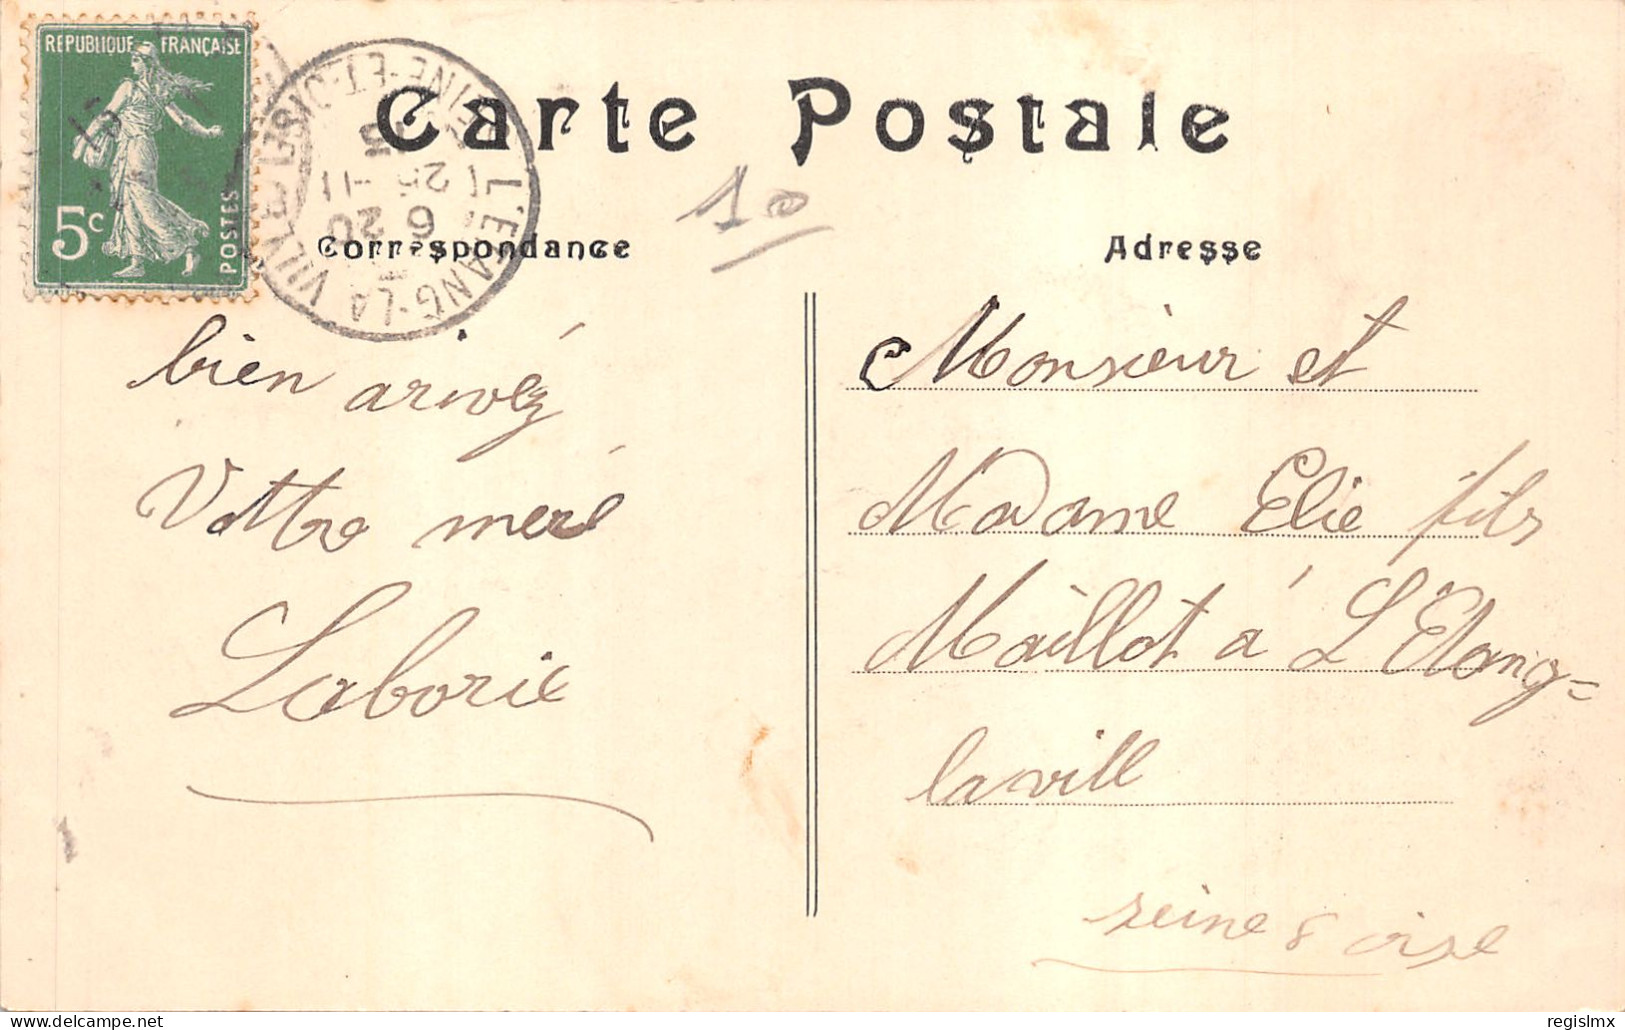 REPUBLIQUE FRANÇAISE
5c
POSTES
L'ETANG-LA VILLE
SEINE-ET-OISE
6 20
25 -11
Carte Postale
10
Correspondance
Adresse
bien arivéz
Vottre meré
Laborie
Monsieur et
Madame Elie fils
Maillot à L'Etang=
lavill
seine & oise
regislmx